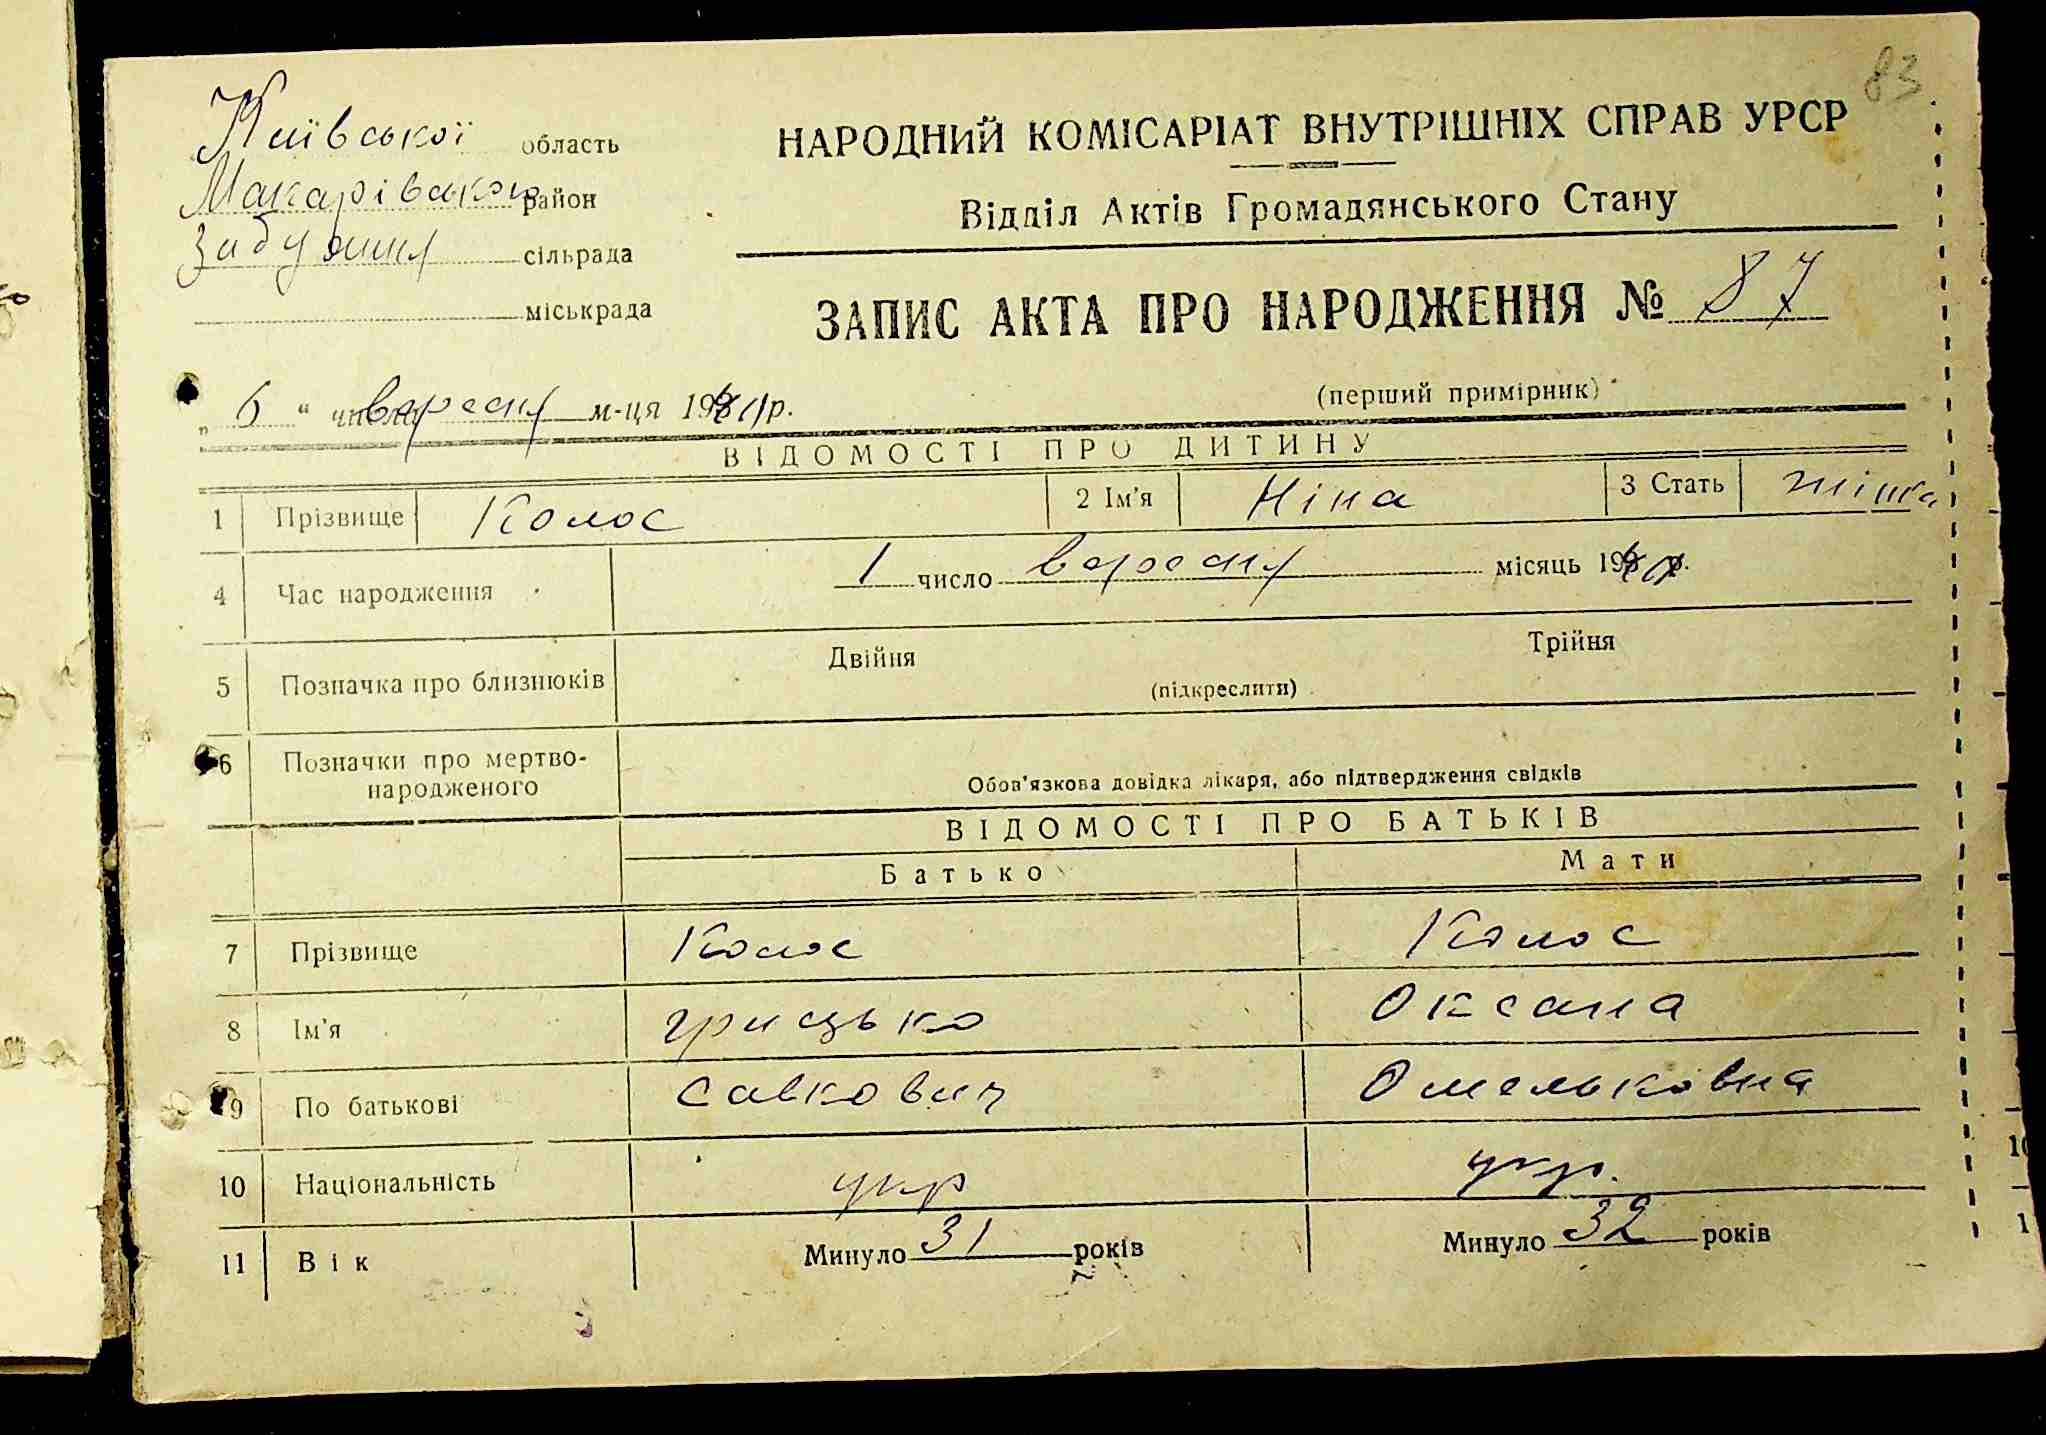 83
Київської область
НАРОДНИЙ КОМІСАРІАТ ВНУТРІШНІХ СПРАВ УРСР
Макарівськ район
Відділ Актів Громадянського Стану
сільрада
міськрада
ЗАПИС АКТА ПРО НАРОДЖЕННЯ № 87
(перший примірник)
„ 6 “ числа вересня м-ця 19 р.
ВІДОМОСТІ ПРО ДИТИНУ
1 Прізвище Колос 2 Ім'я Ніна 3 Стать жіноча
4 Час народження 1 число вересня місяць 19 р.
5 Позначка про близнюків Двійня Трійня
(підкреслити)
6 Позначки про мертво-
народженого Обов'язкова довідка лікаря, або підтвердження свідків
ВІДОМОСТІ ПРО БАТЬКІВ
Батько Мати
7 Прізвище Колос Колос
8 Ім'я Грицько Оксана
9 По батькові Савкович Омельковна
10 Національність укр укр.
11 Вік Минуло 31 років Минуло 32 років